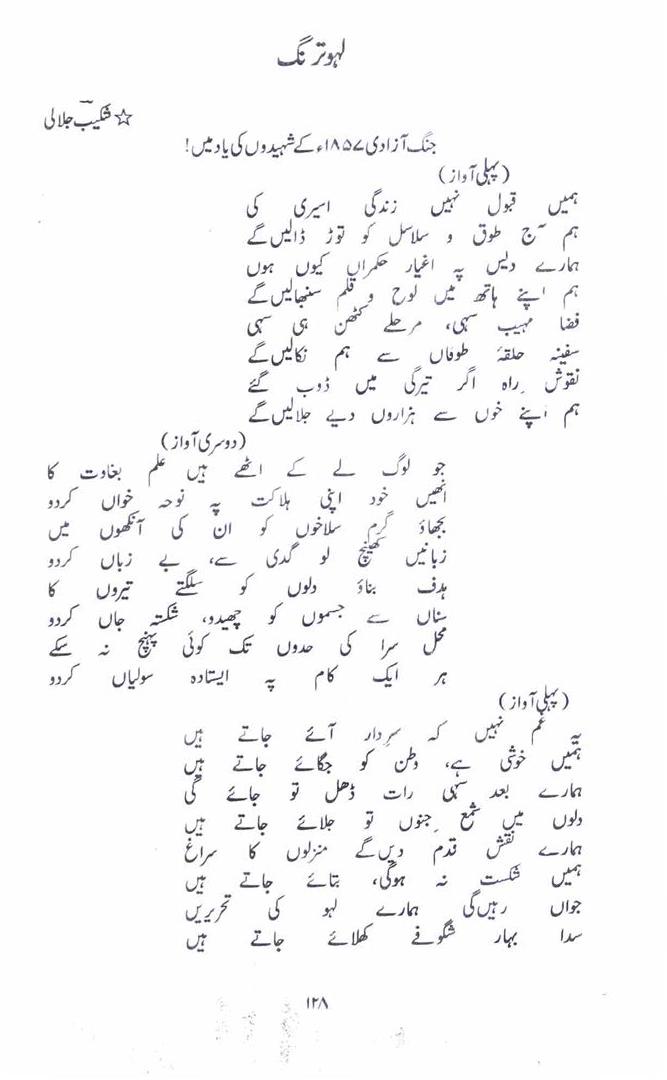 لہو ترنگ
☆ شکیب جلالی
جنگ آزادی ۱۸۵۷ء کے شہیدوں کی یاد میں!
(پہلی آواز)
ہمیں قبول نہیں زندگی اسیری کی
ہم آج طوق و سلاسل کو توڑ ڈالیں گے
ہمارے دیس پہ اغیار حکمراں کیوں ہوں
ہم اپنے ہاتھ میں لوح و قلم سنبھالیں گے
فضا مہیب سہی، مرحلے کٹھن ہی سہی
سفینہ حلقۂ طوفاں سے ہم نکالیں گے
نقوشِ راہ اگر تیرگی میں ڈوب گئے
ہم اپنے خوں سے ہزاروں دیے جلالیں گے
(دوسری آواز)
جو لوگ لے کے اٹھے ہیں علم بغاوت کا
انھیں خود اپنی ہلاکت پہ نوحہ خواں کردو
بجھاؤ گرم سلاخوں کو ان کی آنکھوں میں
زبانیں کھینچ لو گدی سے، بے زباں کردو
ہدف بناؤ دلوں کو سلگتے تیروں کا
سناں سے جسموں کو چھیدو، شکستہ جاں کردو
محل سرا کی حدوں تک کوئی پہنچ نہ سکے
ہر ایک گام پہ ایستادہ سولیاں کردو
(پہلی آواز)
یہ غم نہیں کہ سرِدار آئے جاتے ہیں
ہمیں خوشی ہے، وطن کو جگائے جاتے ہیں
ہمارے بعد سہی رات ڈھل تو جائے گی
دلوں میں شمع جنوں تو جلائے جاتے ہیں
ہمارے نقش قدم دیں گے منزلوں کا سراغ
ہمیں شکست نہ ہوگی، بتائے جاتے ہیں
جواں رہیں گی ہمارے لہو کی تحریریں
سدا بہار شگوفے کھلائے جاتے ہیں
۱۲۸